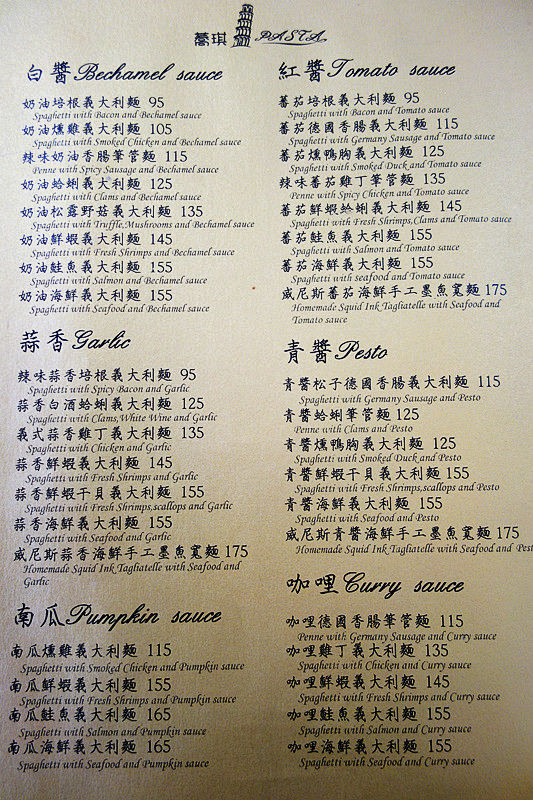 喬琪 PASTA
白醬 Bechamel sauce
奶油培根義大利麵 95
Spaghetti with Bacon and Bechamel sauce
奶油燻雞義大利麵 105
Spaghetti with Smoked Chicken and Bechamel sauce
辣味奶油香腸筆管麵 115
Penne with Spicy Sausage and Bechamel sauce
奶油蛤蜊義大利麵 125
Spaghetti with Clams and Bechamel sauce
奶油松露野菇義大利麵 135
Spaghetti with Truffle,Mushrooms and Bechamel sauce
奶油鮮蝦義大利麵 145
Spaghetti with Fresh Shrimps and Bechamel sauce
奶油鮭魚義大利麵 155
Spaghetti with Salmon and Bechamel sauce
奶油海鮮義大利麵 155
Spaghetti with Seafood and Bechamel sauce
蒜香 Garlic
辣味蒜香培根義大利麵 95
Spaghetti with Spicy Bacon and Garlic
蒜香白酒蛤蜊義大利麵 125
Spaghetti with Clams,White Wine and Garlic
義式蒜香雞丁義大利麵 135
Spaghetti with Chicken and Garlic
蒜香鮮蝦義大利麵 145
Spaghetti with Fresh Shrimps and Garlic
蒜香鮮蝦干貝義大利麵 155
Spaghetti with Fresh Shrimps,scallops and Garlic
蒜香海鮮義大利麵 155
Spaghetti with Seafood and Garlic
威尼斯蒜香海鮮手工墨魚寬麵 175
Homemade Squid Ink Tagliatelle with Seafood and
Garlic
南瓜 Pumpkin sauce
南瓜燻雞義大利麵 115
Spaghetti with Smoked Chicken and Pumpkin sauce
南瓜鮮蝦義大利麵 155
Spaghetti with Fresh Shrimps and Pumpkin sauce
南瓜鮭魚義大利麵 165
Spaghetti with Salmon and Pumpkin sauce
南瓜海鮮義大利麵 165
Spaghetti with Seafood and Pumpkin sauce
紅醬 Tomato sauce
蕃茄培根義大利麵 95
Spaghetti with Bacon and Tomato sauce
蕃茄德國香腸義大利麵 115
Spaghetti with Germany Sausage and Tomato sauce
蕃茄燻鴨胸義大利麵 125
Spaghetti with Smoked Duck and Tomato sauce
辣味蕃茄雞丁筆管麵 135
Penne with Spicy Chicken and Tomato sauce
蕃茄鮮蝦蛤蜊義大利麵 145
Spaghetti with Fresh Shrimps,Clams and Tomato sauce
蕃茄鮭魚義大利麵 155
Spaghetti with Salmon and Tomato sauce
蕃茄海鮮義大利麵 155
Spaghetti with seafood and Tomato sauce
威尼斯蕃茄海鮮手工墨魚寬麵 175
Homemade Squid Ink Tagliatelle with Seafood and
Tomato sauce
青醬 Pesto
青醬松子德國香腸義大利麵 115
Spaghetti with Germany Sausage and Pesto
青醬蛤蜊筆管麵 125
Penne with Clams and Pesto
青醬燻鴨胸義大利麵 125
Spaghetti with Smoked Duck and Pesto
青醬鮮蝦干貝義大利麵 155
Spaghetti with Fresh Shrimps,scallops and Pesto
青醬海鮮義大利麵 155
Spaghetti with Seafood and Pesto
威尼斯青醬海鮮手工墨魚寬麵 175
Homemade Squid Ink Tagliatelle with Seafood and Pest
咖哩 Curry sauce
咖哩德國香腸筆管麵 115
Penne with Germany Sausage and Curry sauce
咖哩雞丁義大利麵 135
Spaghetti with Chicken and Curry sauce
咖哩鮮蝦義大利麵 145
Spaghetti with Fresh Shrimps and Curry sauce
咖哩鮭魚義大利麵 155
Spaghetti with Salmon and Curry sauce
咖哩海鮮義大利麵 155
Spaghetti with Seafood and Curry sauce